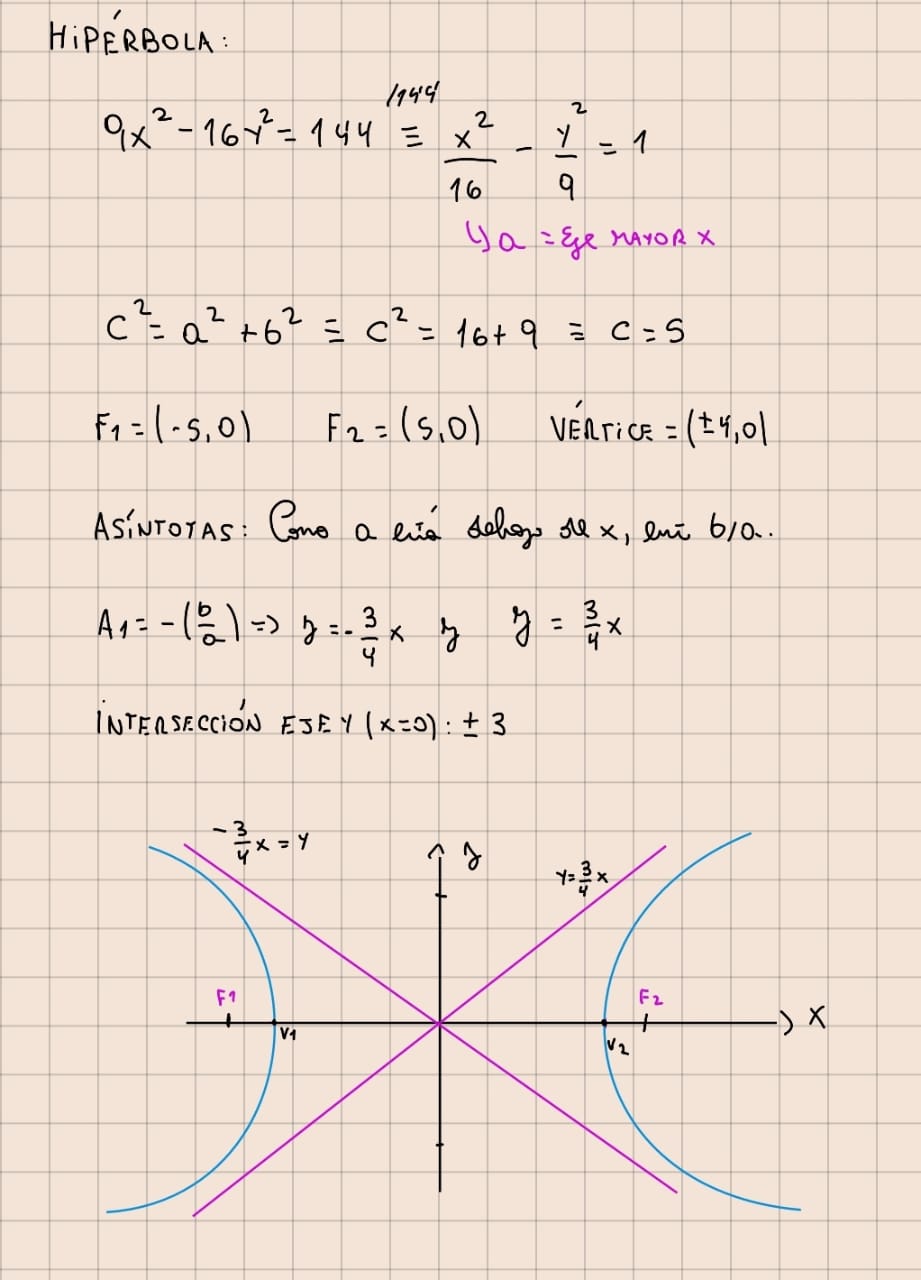 HiPÉRBOLA:
/144
9x² - 16y² = 144 ≡ x²/16 - y²/9 = 1
↳ a = Eje MAYOR X
C² = a² + b² ≡ c² = 16 + 9 ≡ C = 5
F1 = (-5,0) F2 = (5,0) VÉRTiCE = (±4,0)
ASÍNTOTAS: Como a está debajo de x, está b/a.
A1 = -(b/a) => y = -3/4 x y y = 3/4 x
iNTERSECCIÓN EJE Y (X=0): ± 3
-3/4 x = Y
y
Y = 3/4 x
F1
F2
X
V1
V2